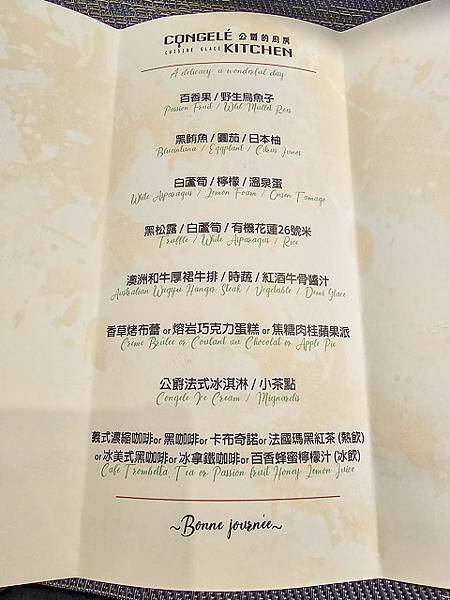 CONGELÉ 公爵的廚房
CUISINE GLACE KITCHEN
A delicacy, a wonderful day
百香果 / 野生烏魚子
Passion Fruit / Wild Mullet Roes
黑鮪魚 / 圓茄 / 日本柚
Bluefintuna / Eggplant / Citrus Junos
白蘆筍 / 檸檬 / 溫泉蛋
White Asparagus / Lemon Foam / Onsen Tamago
黑松露 / 白蘆筍 / 有機花蓮26號米
Truffle / White Asparagus / Rice
澳洲和牛厚裙牛排 / 時蔬 / 紅酒牛骨醬汁
Australian Wagyu Hanger Steak / Vegetable / Demi Glace
香草烤布蕾 or 熔岩巧克力蛋糕 or 焦糖肉桂蘋果派
Creme Brulee or Coulant au Chocolat or Apple Pie
公爵法式冰淇淋 / 小茶點
Congele Ice Cream / Mignardis
義式濃縮咖啡or 黑咖啡or 卡布奇諾or 法國瑪黑紅茶 (熱飲)
or 冰美式黑咖啡or 冰拿鐵咖啡or 百香蜂蜜檸檬汁 (冰飲)
Cafe Trombetta, Tea or Passion fruit Honey Lemon Juice
~Bonne journée~